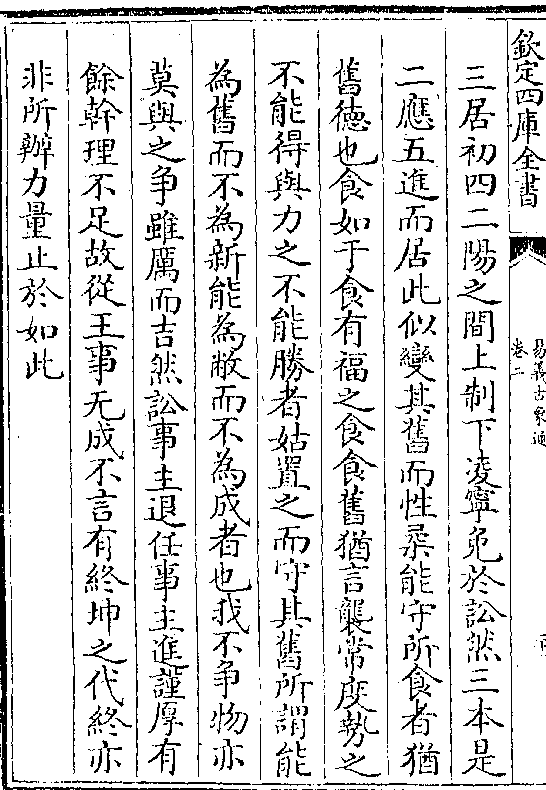 欽定四庫全書
易義古象通
卷二
三居初四二陽之間上制下凌寧免於訟然三本是
二應五進而居此似變其舊而性柔能守所食者猶
舊德也食如于食有福之食食舊猶言襲常度勢之
不能得與力之不能勝者姑置之而守其舊所謂能
為舊而不為新能為敝而不為成者也我不争物亦
莫與之争雖厲而吉然訟事主退任事主進謹厚有
餘幹理不足故從王事无成不言有終坤之代終亦
非所辦力量止於如此